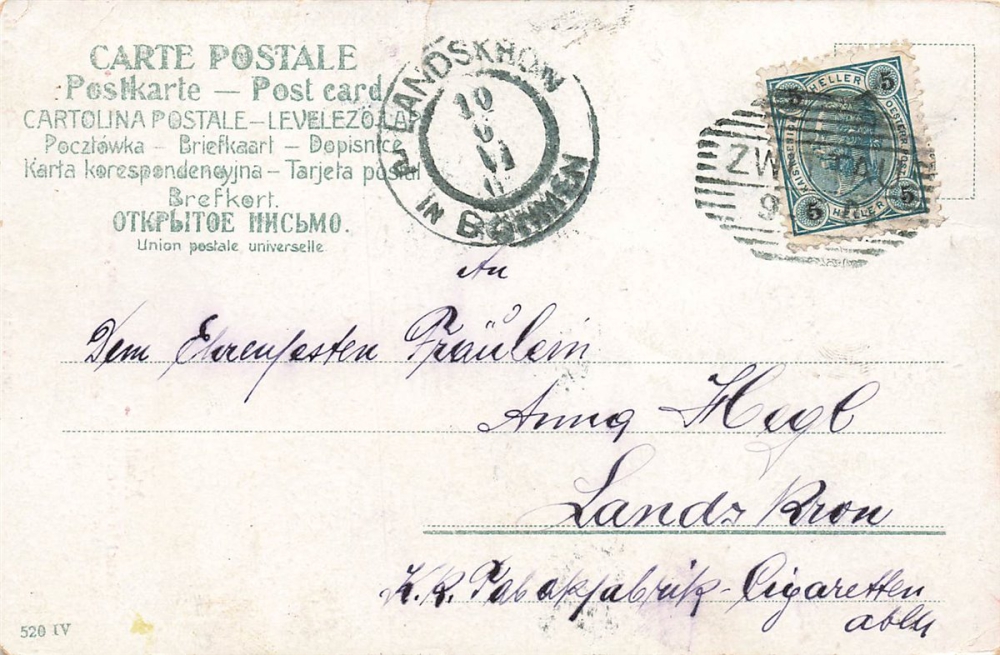 CARTE POSTALE
Postkarte — Post card
CARTOLINA POSTALE — LEVELEZŐ LAP
Pocztówka - Briefkaart - Dopisnice
Karta korespondencyjna - Tarjeta postal
Brefkort.
ОТКРЫТОЕ ПИСЬМО.
Union postale universelle
LANDSKRON
10
6
IN BÖHMEN
HELLER
5
5
5
5
HELLER
ZW
9
An
Dem Ehrenfesten Fräulein
Anna Hegl
Landskron
K.k. Tabakfabrik - Cigaretten
520 IV